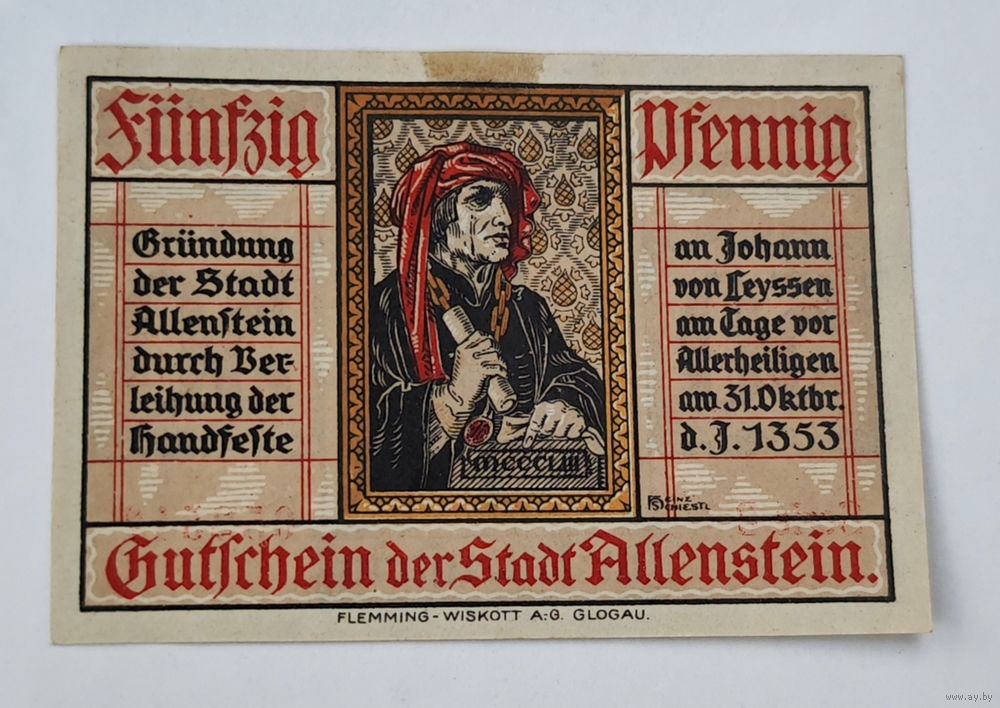 Fünfzig
Pfennig
Gründung
der Stadt
Allenstein
durch Ver-
leihung der
Handfeste
an Johann
von Leyssen
am Tage vor
Allerheiligen
am 31. Oktbr.
d. J. 1353
MCCCLIII
HEINZ
SCHIESTL
Gutschein der Stadt Allenstein.
FLEMMING-WISKOTT A.-G. GLOGAU.
www.ay.by